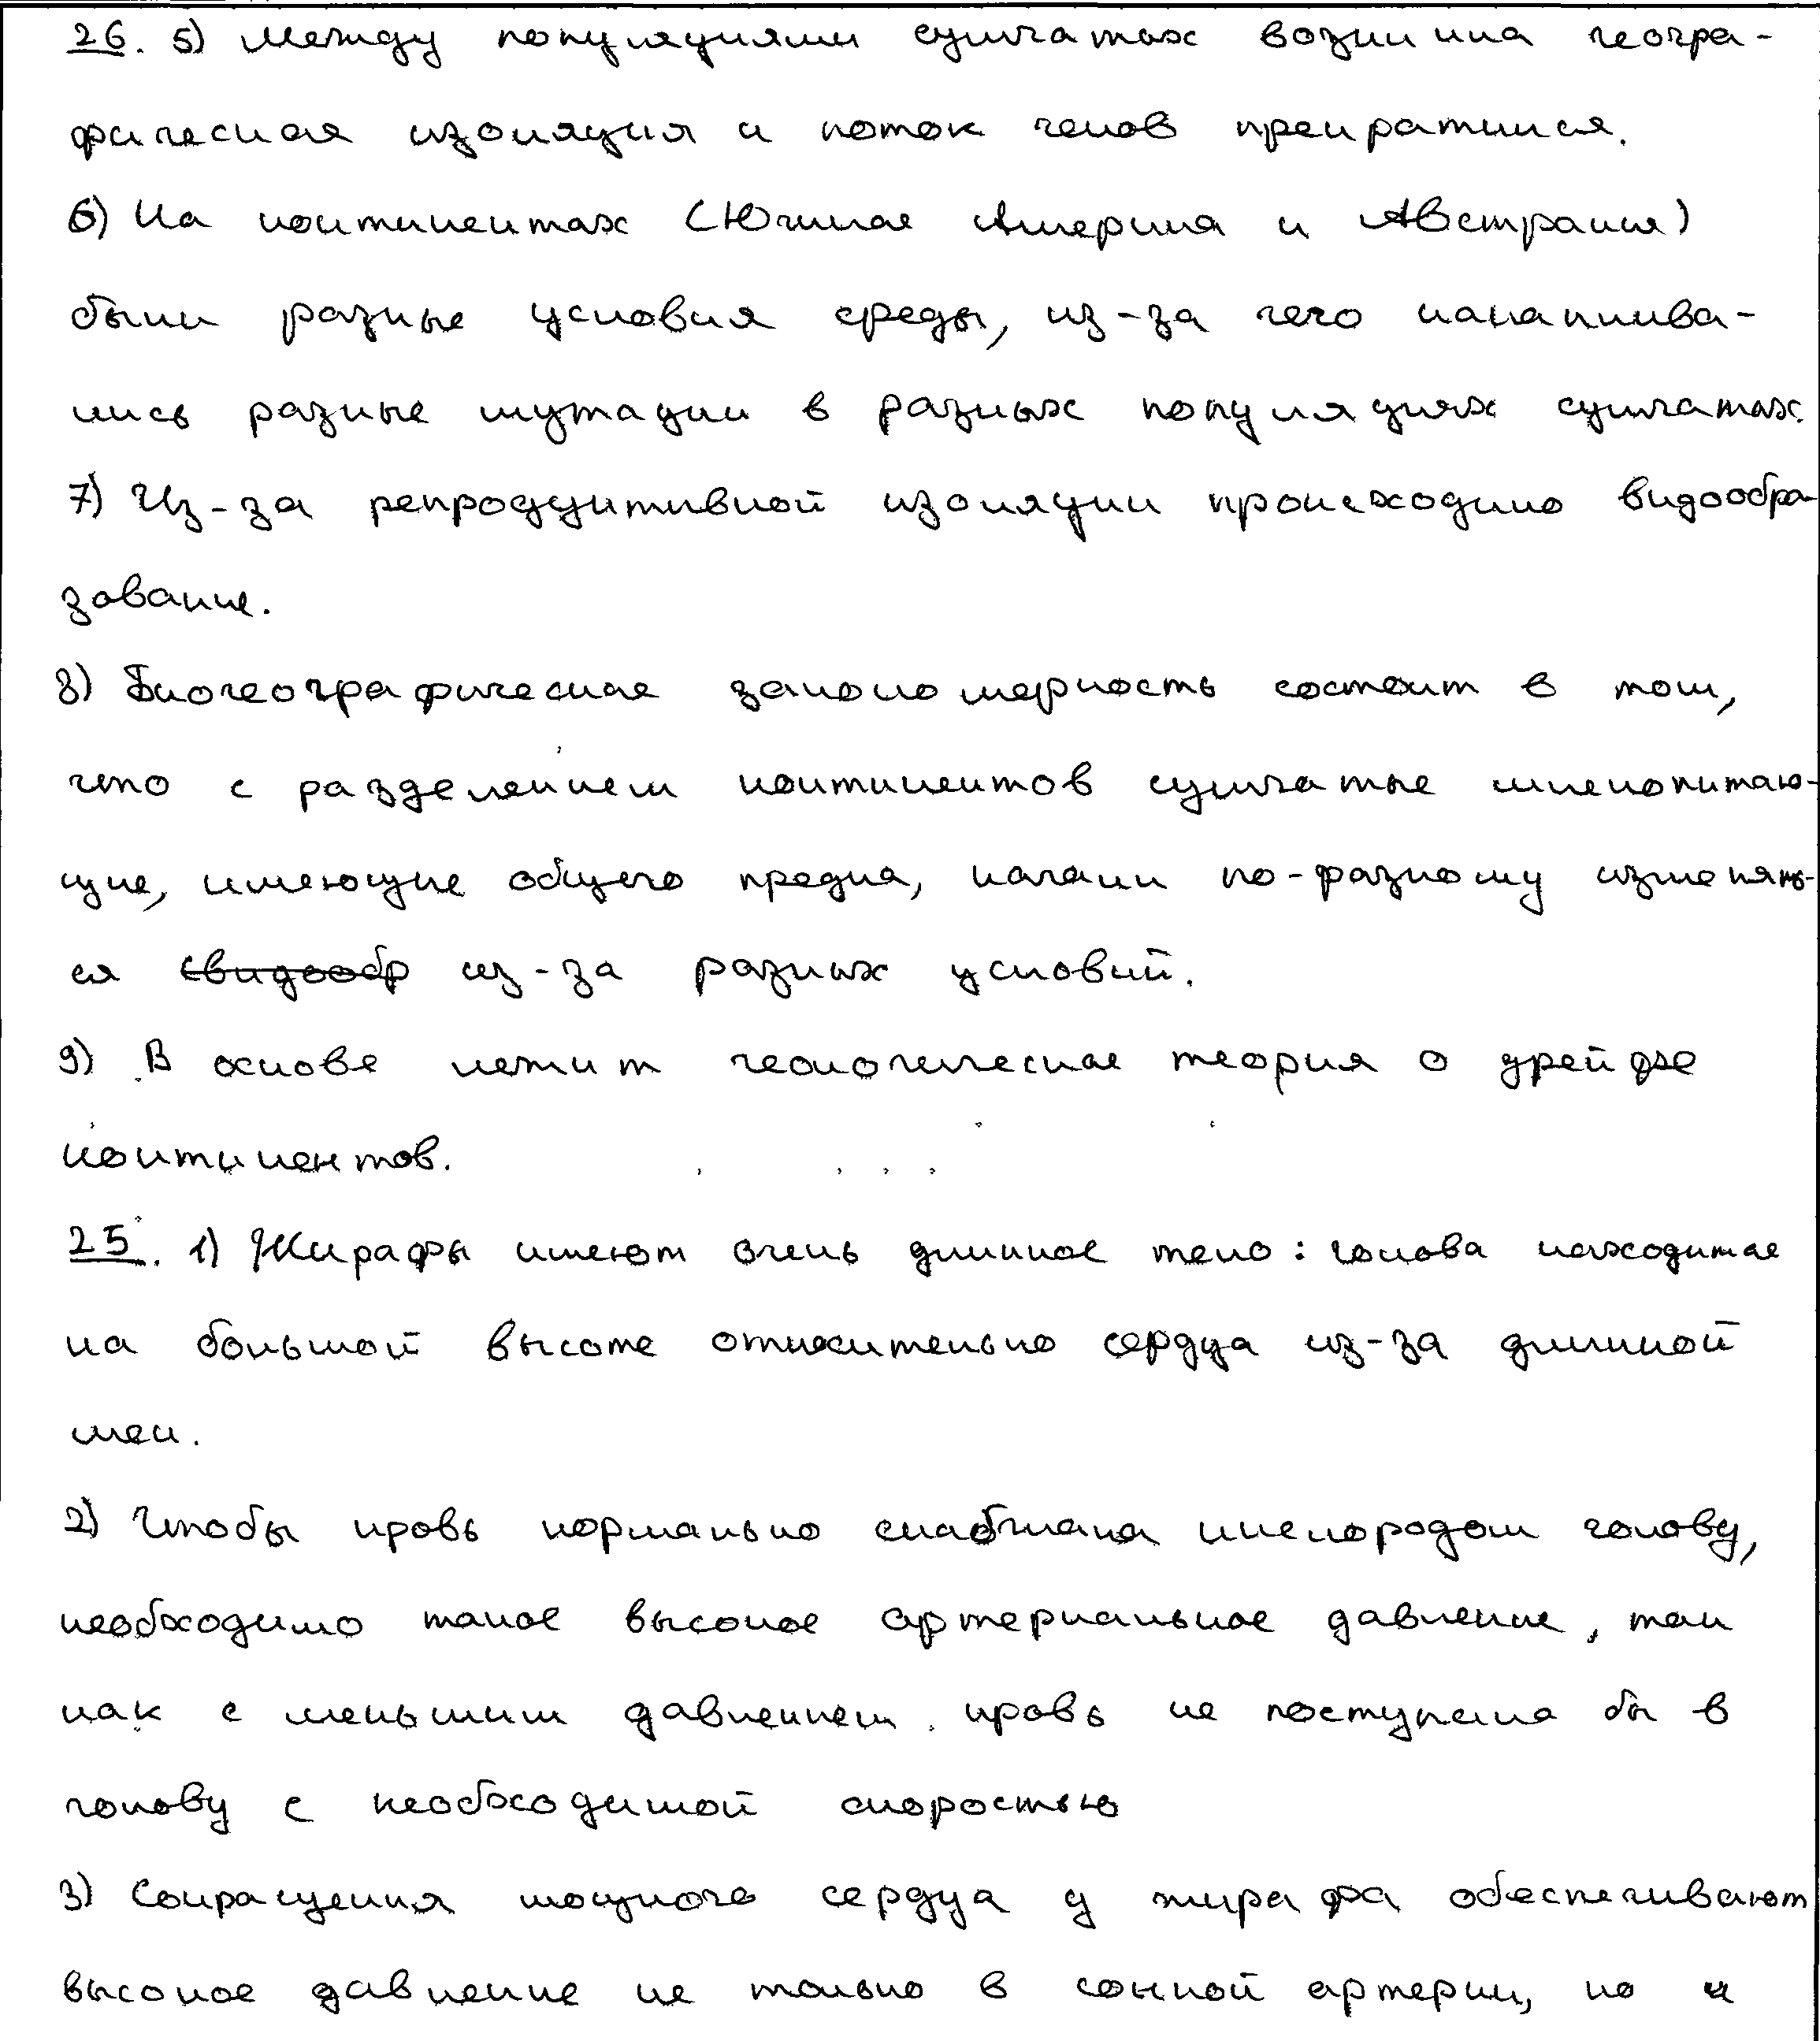 26. 5) Между популяциями сумчатых возникла геогра-
фическая изоляция и поток генов прекратился.
6) На континентах (Южная Америка и Австралия)
были разные условия среды, из-за чего накаплива-
лись разные мутации в разных популяциях сумчатых.
7) Из-за репродуктивной изоляции происходило видообра-
зование.
8) Биогеографическая закономерность состоит в том,
что с разделением континентов сумчатые млекопитаю-
щие, имеющие общего предка, начали по-разному изменять-
ся свидообр из-за разных условий.
9) В основе лежит геологическая теория о дрейфе
континентов.
25. 1) Жирафы имеют очень длинное тело: голова находится
на большой высоте относительно сердца из-за длинной
шеи.
2) Чтобы кровь нормально снабжала кислородом голову,
необходимо такое высокое артериальное давление, так
как с меньшим давлением кровь не поступала бы в
голову с необходимой скоростью
3) Сокращения мощного сердца у жирафа обеспечивают
высокое давление не только в сонной артерии, но и